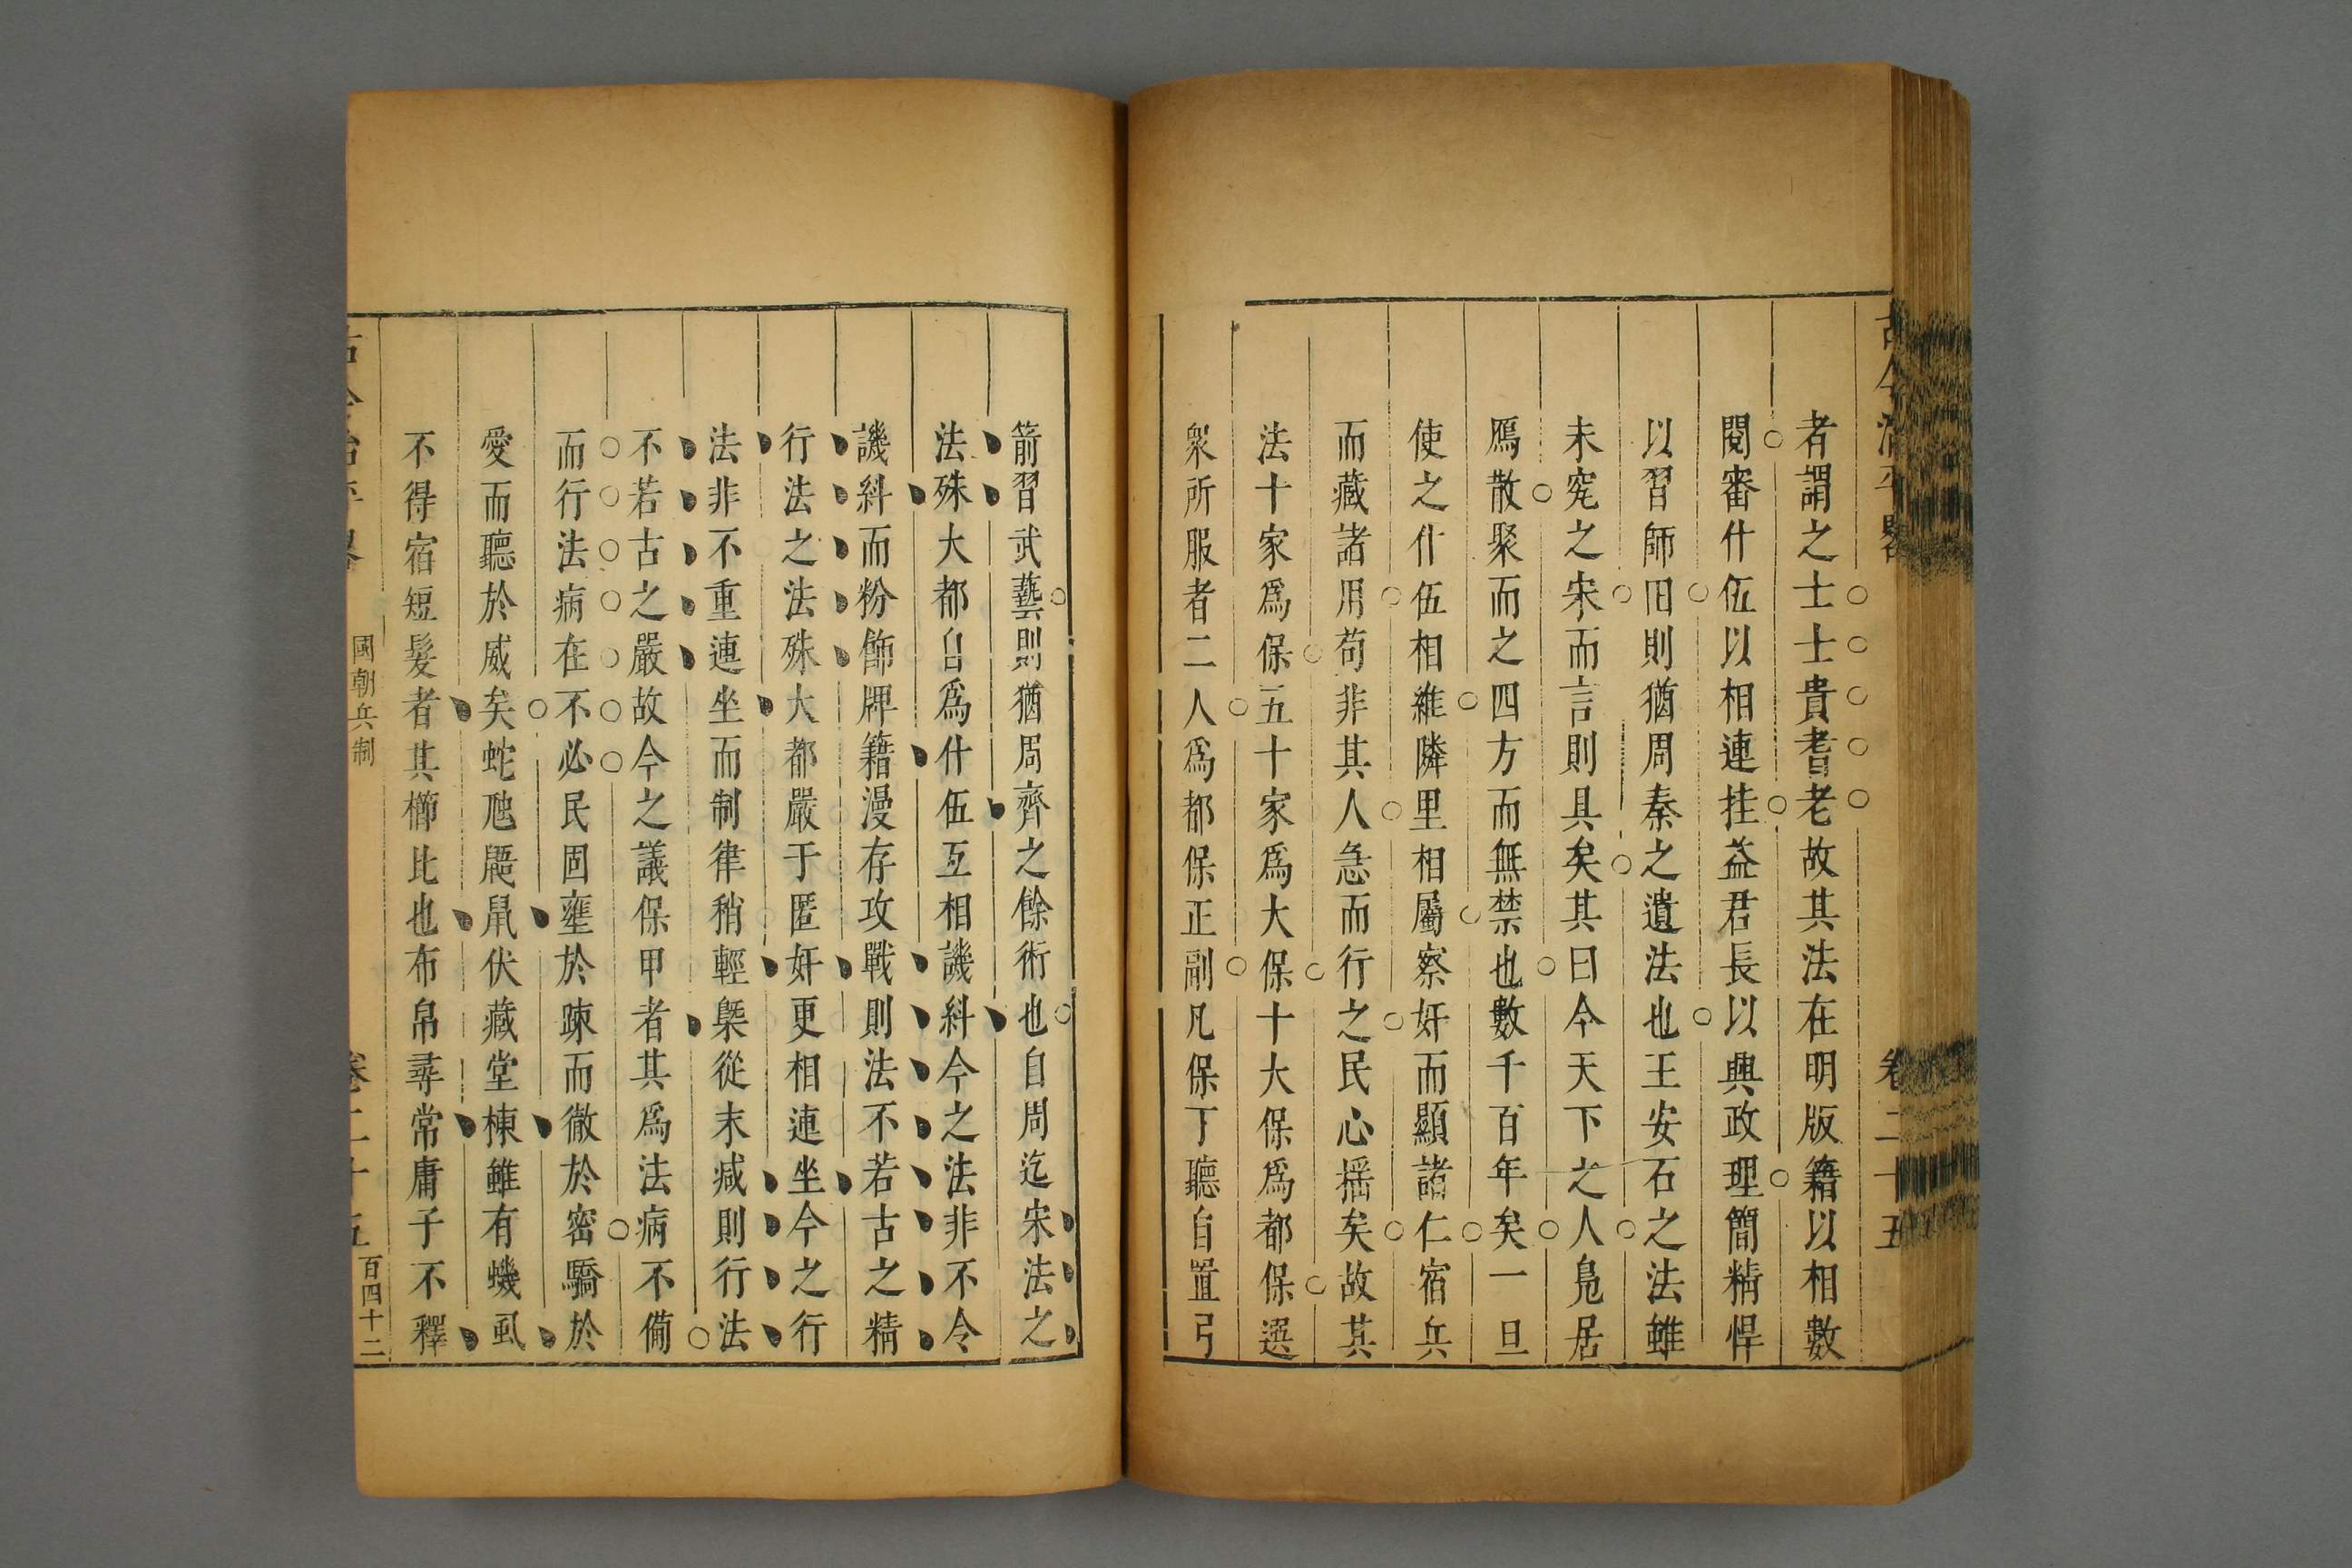 古今治平畧 卷二十五
者謂之士士貴耆老故其法在明版籍以相數
閱審什伍以相連挂益君長以興政理簡精悍
以習師田則猶周秦之遺法也王安石之法雖
未究之宋而言則具矣其曰今天下之人鳧居
鴈散聚而之四方而無禁也數千百年矣一旦
使之什伍相維隣里相屬察奸而顯諸仁宿兵
而藏諸用苟非其人急而行之民心搖矣故其
法十家爲保五十家爲大保十大保爲都保選
衆所服者二人爲都保正副凡保丁聽自置弓
箭習武藝則猶周齊之餘術也自周迄宋法之
法殊大都自爲什伍互相譏糾今之法非不令
譏糾而粉飾牌籍漫存攻戰則法不若古之精
行法之法殊大都嚴于匿奸更相連坐今之行
法非不重連坐而制律稍輕槩從末减則行法
不若古之嚴故今之議保甲者其爲法病不備
而行法病在不必民固壅於疎而徹於密驕於
愛而聽於威矣蛇虺鼴鼠伏藏堂棟雖有蟣虱
不得宿短髮者其櫛比也布帛尋常庸子不釋
古今治平畧 國朝兵制 卷二十五 百四十二